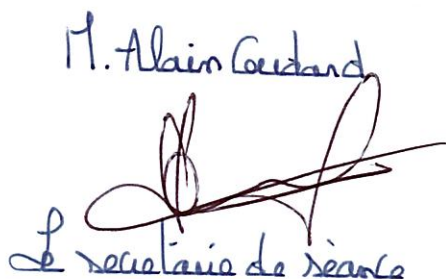 M. Alain Coudard
Le secrétaire de séance